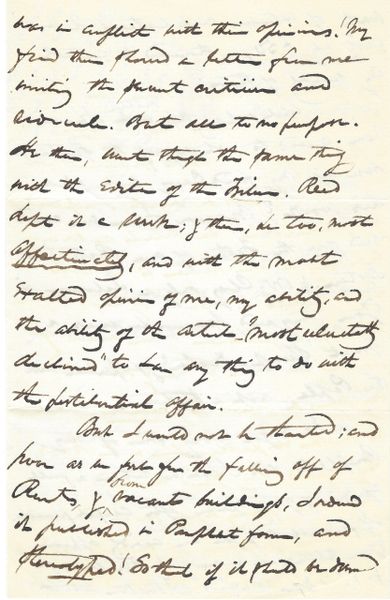 was in conflict with their opinions! My
friend then showed a letter from me
inviting the severest criticism and
ridicule. But all to no purpose.
He then, went through the same thing
with the Editor of the Tribune. Reid
kept it a week; & then, he too, most
affectionately, and with the most
exalted opinion of me, my ability, and
the ability of the article "most reluctantly
declined" to have any thing to do with
the pestilential affair.
But I would not be thwarted; and
poor as we are from the falling off of
Rents, & from vacant buildings, I had
it published in Pamphlet form, and
stereotyped! So that if it should be